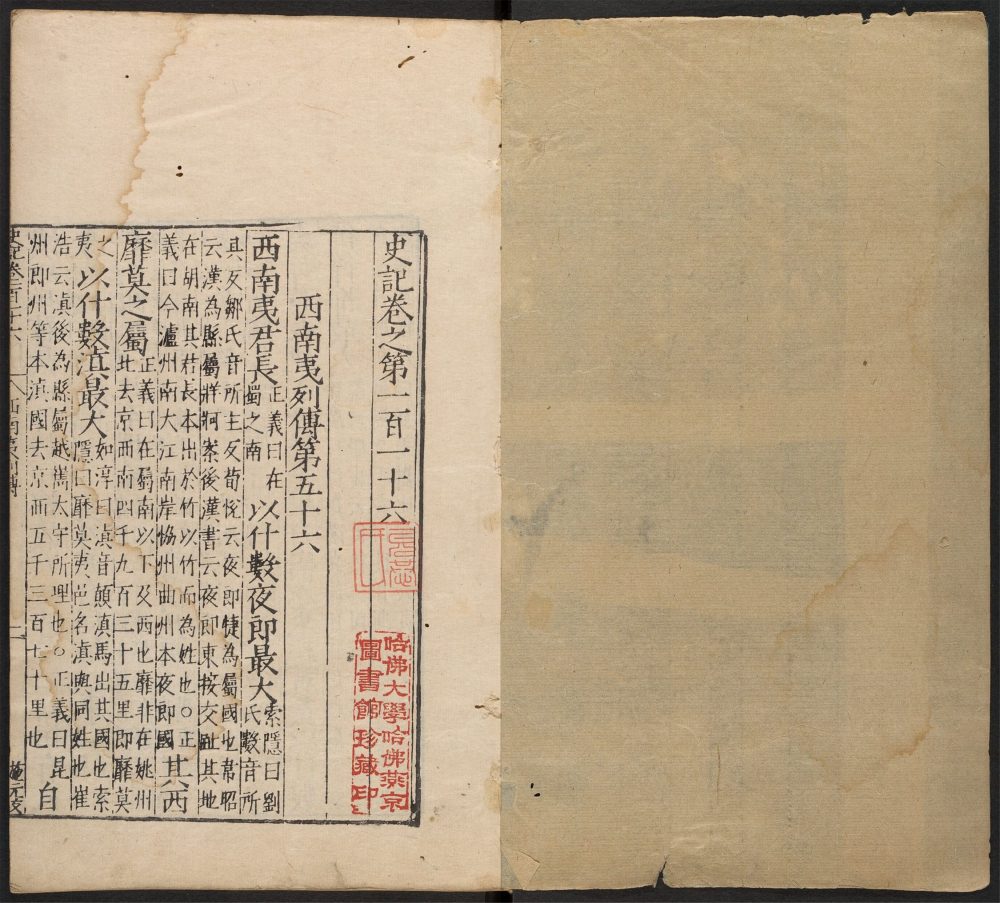 史記卷之第一百一十六
西南夷列傳第五十六
西南夷君長正義曰在蜀之南以什數夜郎最大索隱曰劉氏數音所
具反鄒氏音所主反荀悅云夜郎犍為屬國也韋昭
云漢為縣屬牂牁案後漢書云夜郎東接交趾其地
在胡南其君長本出於竹以竹而為姓也○正
義曰今瀘州南大江南岸協州曲州本夜郎國其西
靡莫之屬正義曰在蜀南以下及西也靡非在姚州
北去京西南四千九百三十五里即靡莫
之夷以什數滇最大如淳曰滇音顛滇馬出其國也索
隱曰靡莫夷邑名滇與同姓也崔
浩云滇後為縣屬越嶲太守所理也○正義曰昆
州郎州等本滇國去京西五千三百七十里也自
哈佛大學哈佛燕京
圖書館珍藏印